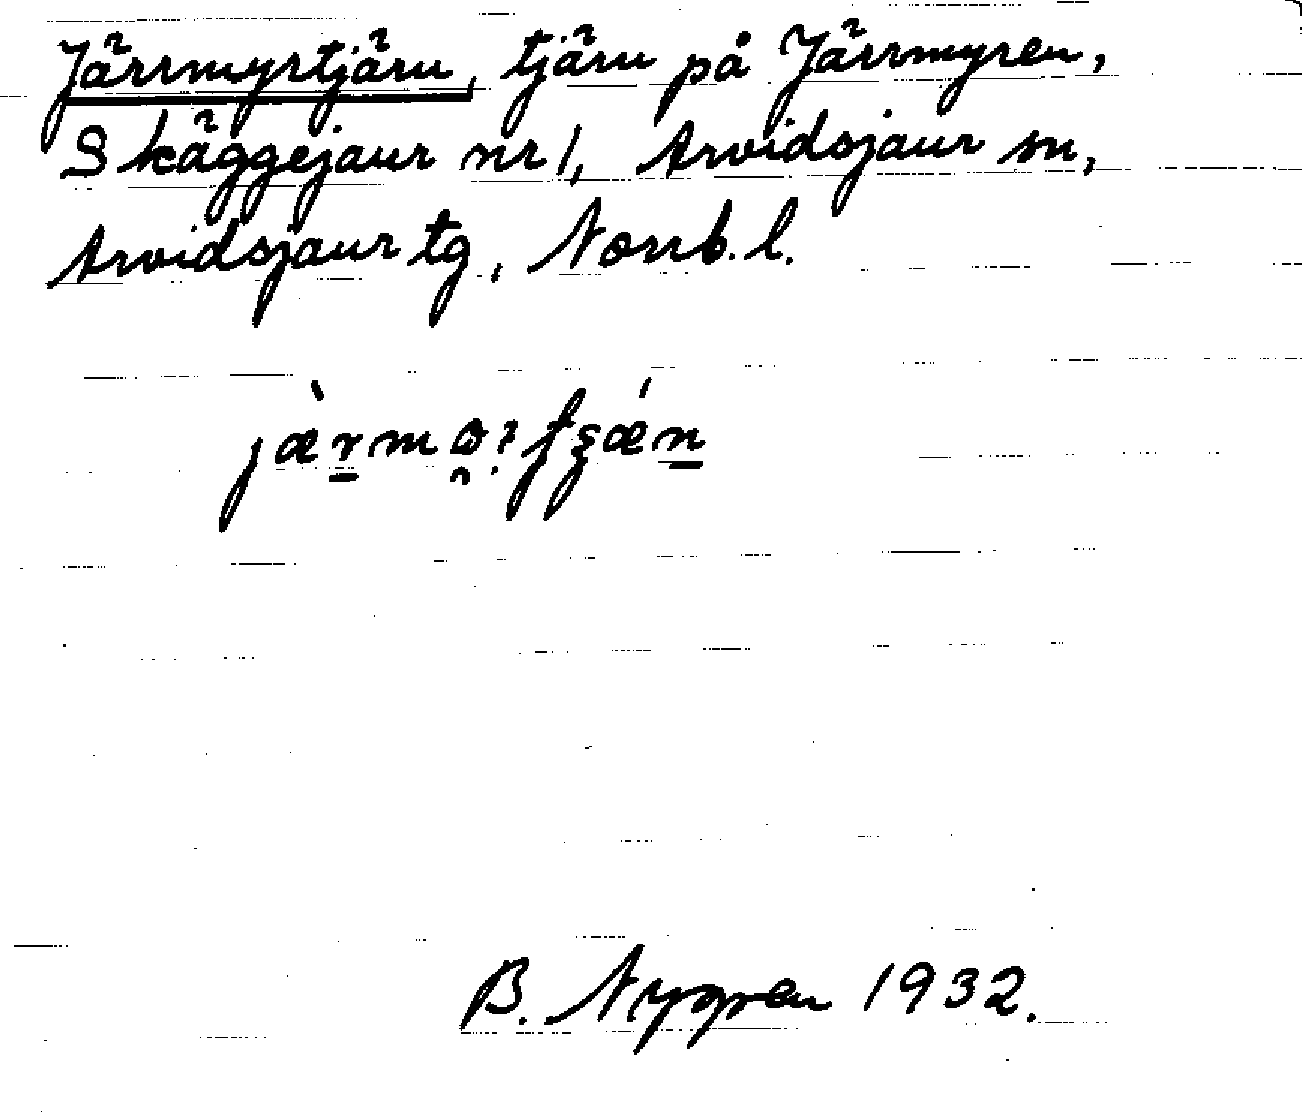 Järrmyrtjärn, tjärn på Järrmyren,
Skäggejaur nr 1, Arvidsjaur sn,
Arvidsjaur tg, Norrb. l.
B. Nygren 1932.